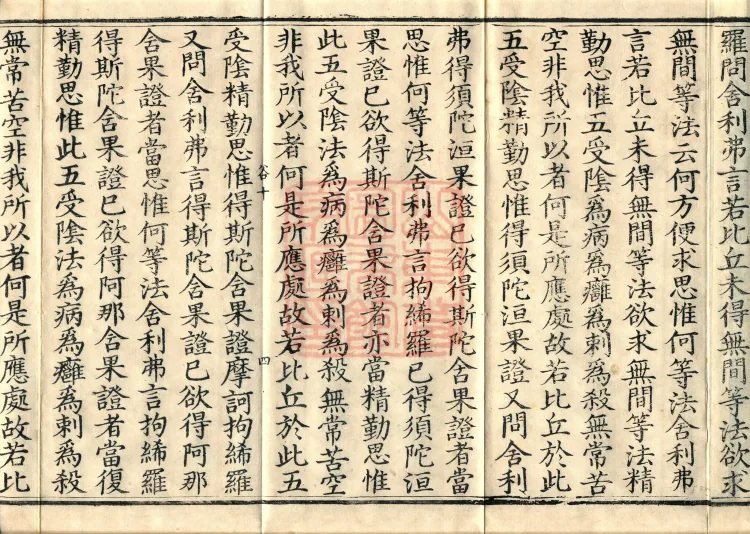 羅問舍利弗言若比丘未得無間等法欲求
無間等法云何方便求思惟何等法舍利弗
言若比丘未得無間等法欲求無間等法精
勤思惟五受陰為病為癰為刺為殺無常苦
空非我所以者何是所應處故若比丘於此
五受陰精勤思惟得須陀洹果證又問舍利
弗得須陀洹果證已欲得斯陀含果證者當
思惟何等法舍利弗言拘絺羅已得須陀洹
果證已欲得斯陀含果證者亦當精勤思惟
此五受陰法為病為癰為刺為殺無常苦空
非我所以者何是所應處故若比丘於此五
谷十 四
受陰精勤思惟得斯陀含果證摩訶拘絺羅
又問舍利弗言得斯陀含果證已欲得阿那
含果證者當思惟何等法舍利弗言拘絺羅
得斯陀含果證已欲得阿那含果證者當復
精勤思惟此五受陰法為病為癰為刺為殺
無常苦空非我所以者何是所應處故若比